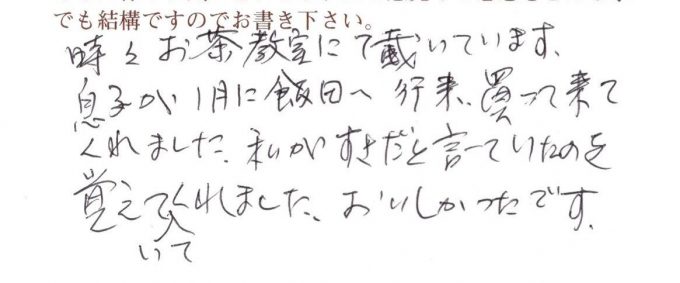 でも結構ですのでお書き下さい。
時々お茶教室にて戴いています、
息子が1月に飯田へ行来、買って来て
くれました、私がすきだと言っていたのを
覚えてくれました、おいしかったです、
いて